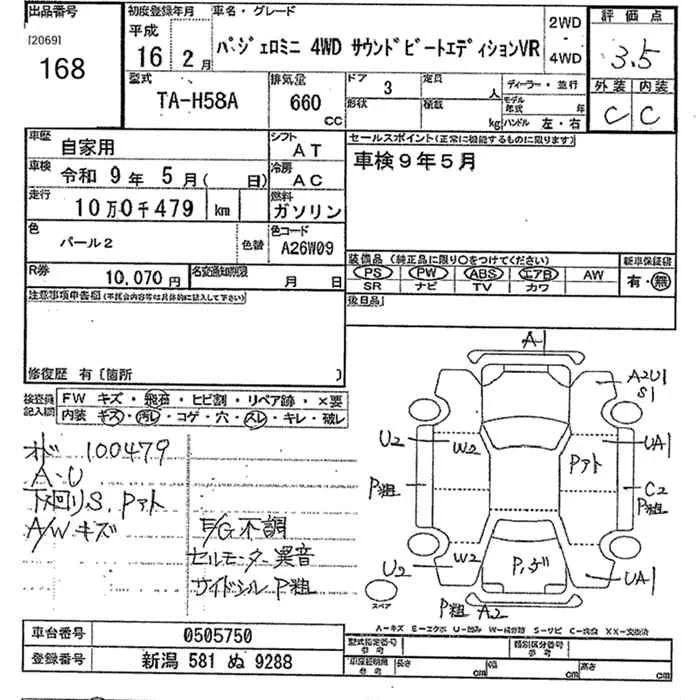 出品番号
[2069]
168
初度登録年月
平成
16 2月
車名・グレード
パジェロミニ 4WD サウンドビートエディションVR
2WD
・
4WD
評価点
3.5
外装 内装
C C
型式
TA-H58A
排気量
660
cc
ドア 3
形状
定員
人
積載
kg
ディーラー・並行
モデル年式 年
ハンドル 左・右
車歴 自家用
シフト AT
車検 令和 9年 5月( 日)
冷房 AC
走行 10万0千479 km
燃料 ガソリン
色 パール2
色替
色コード A26W09
R券 10,070円
名変通知期限 月 日
セールスポイント(正常に機能するものに限ります)
車検9年5月
装備品 (純正品に限り○をつけてください)
PS PW ABS エアB AW
SR ナビ TV カワ
新車保証書
有・無
後日品
注意事項申告欄(不具合内容等は具体的に記入して下さい)
修復歴 有〔箇所 〕
検査員
記入欄
FW キズ・飛石・ヒビ割・リペア跡・×要
内装・キズ・汚レ・コゲ・穴・スレ・キレ・破レ
オド 100479
A・U
下回りS、Pアト
A/Wキズ
E/G不調
セルモーター異音
サイドシルP粗
A1
A2U1
S1
U2
W2
UA1
Pアト
P粗
C2
P粗
U2
W2
Pハゲ
UA1
スペア
P粗 A2
A-キズ E-エクボ U-凹み W-補修跡 S-サビ C-腐食 XX-交換済
車台番号 0505750
登録番号 新潟 581 ぬ 9288
型式指定番号
参考
類別区分番号
参考
車庫証明用
参考
長さ cm
幅 cm
高さ cm